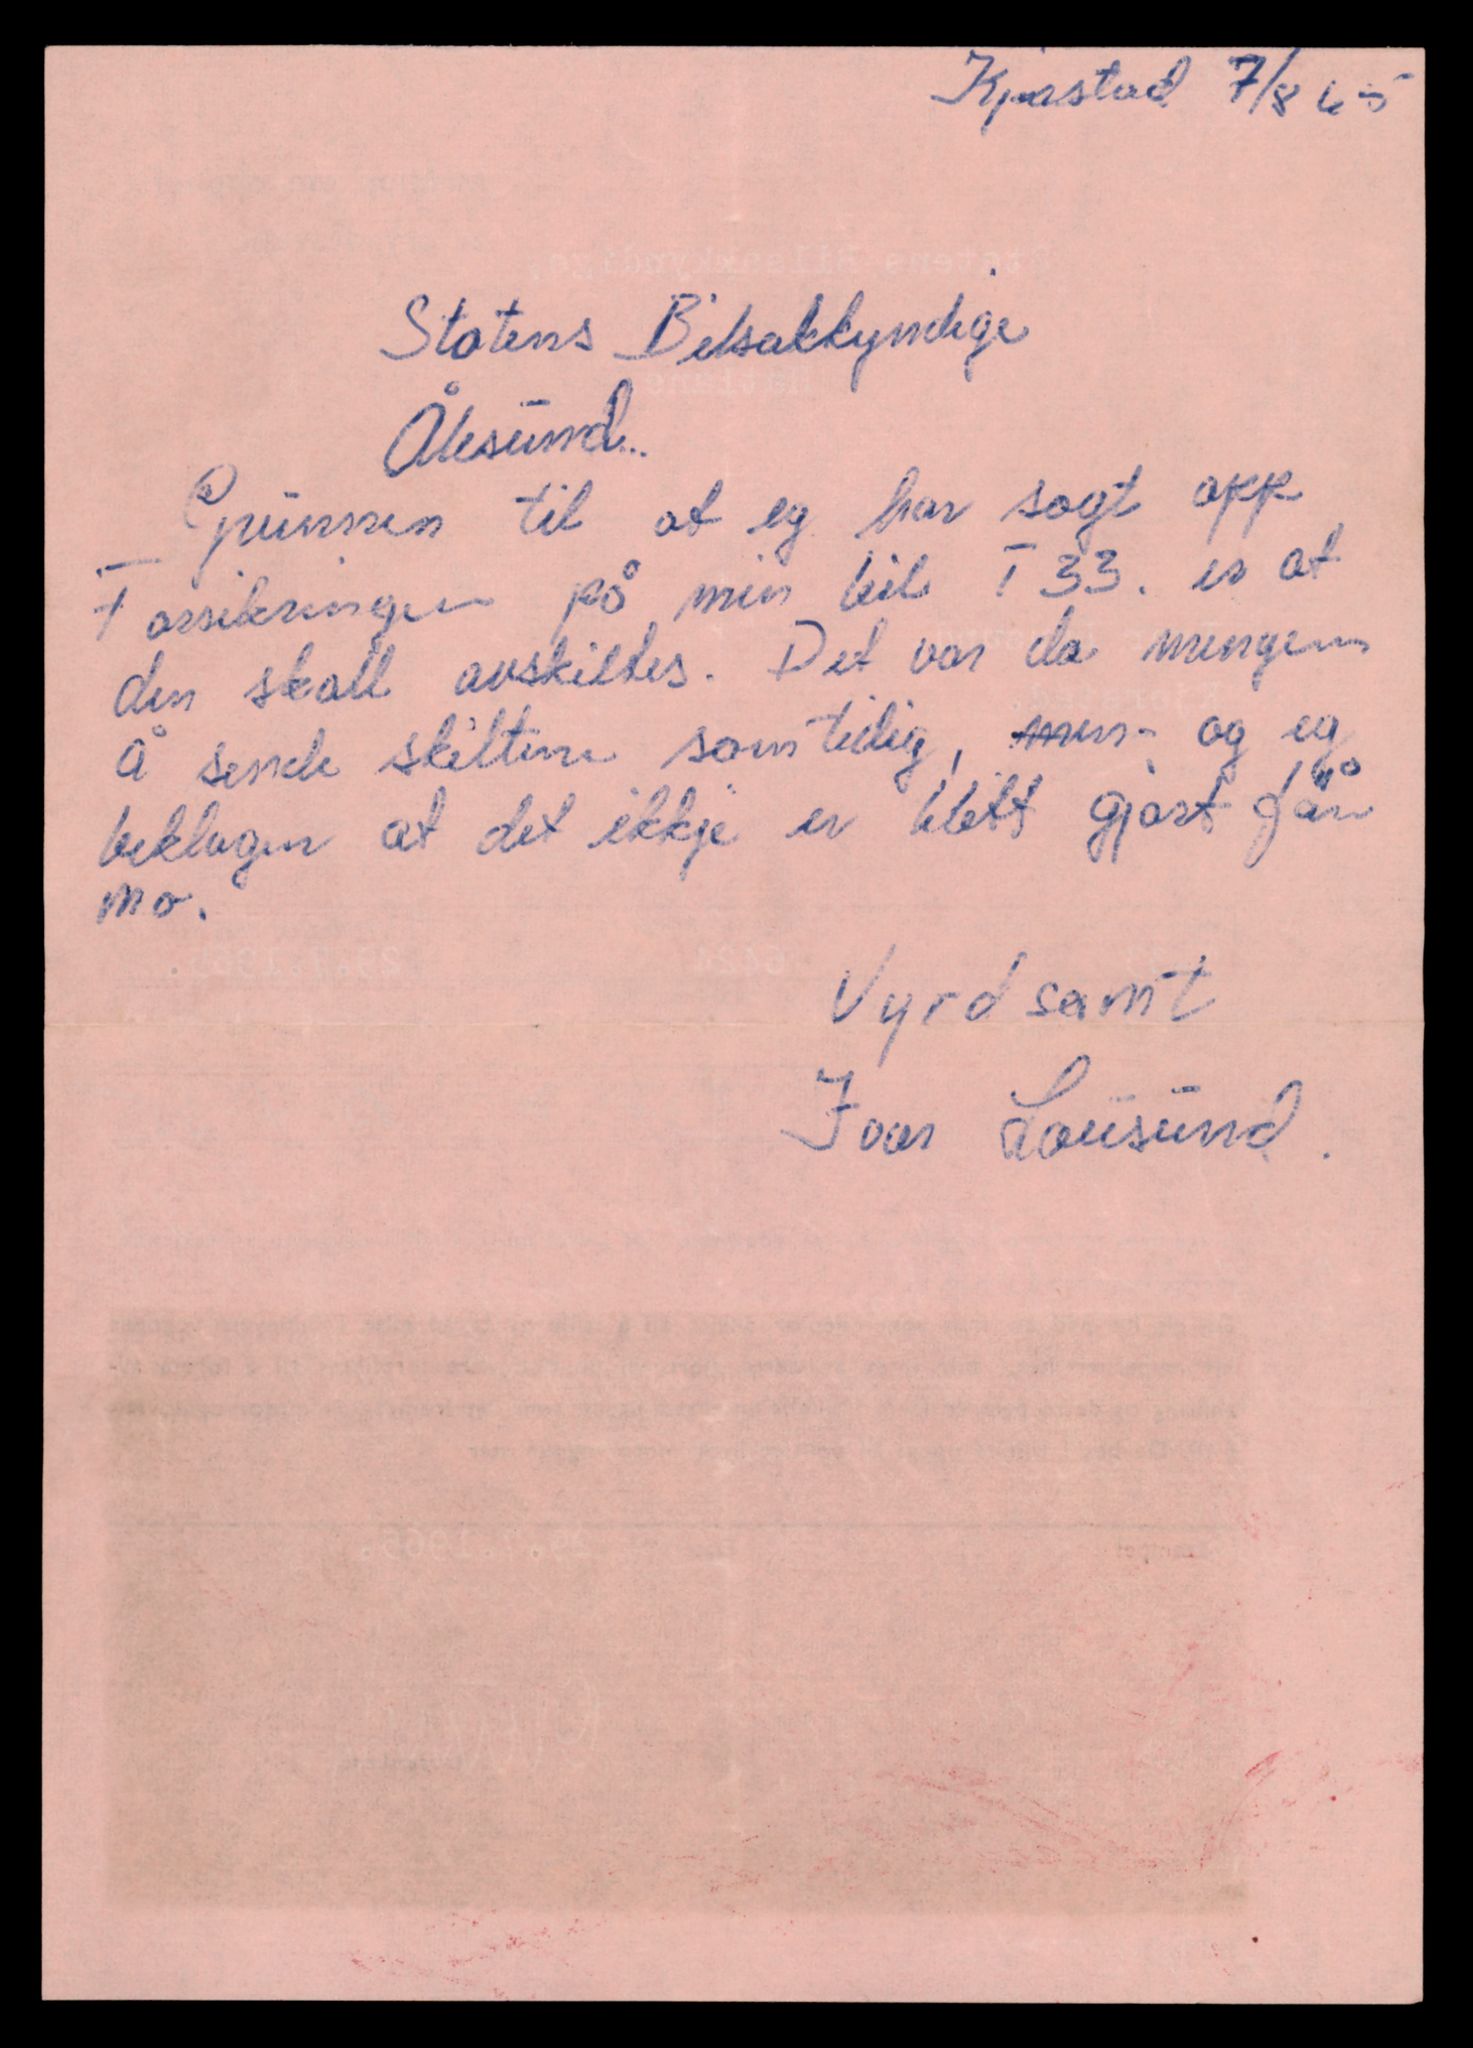 Kjørstad 7/8 65
Statens Bilsakkyndige
Ålesund...
Grunnen til at eg har sagt opp
Forsikringen på min bil T 33. er at
den skall avskiltes. Det var da mengen
å sende skiltene samtidig, men og eg
beklager at det ikkje er blitt gjort før
no.
Vyrdsamt
Ivar Lausund.